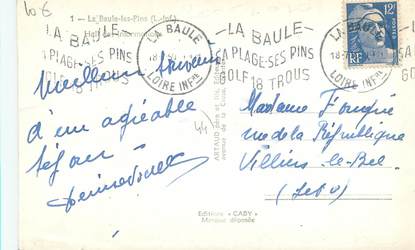 10 €
1 - La Baule-les-Pins (L.-Inf.)
LA BAULE
SA PLAGE-SES PINS
GOLF 18 TROUS
LA BAULE
LOIRE INFRE
- LA BAULE -
SA PLAGE-SES PINS
GOLF 18 TROUS
LA BAULE
LOIRE INFRE
12F
RF
Meilleurs souvenirs
d'un agréable
séjour
44
ARTAUD père et fils, Éditeurs
Madame Fougère
rue de la République
Villiers-le-Bel
(S et O)
Editions « GABY »
Marque déposée